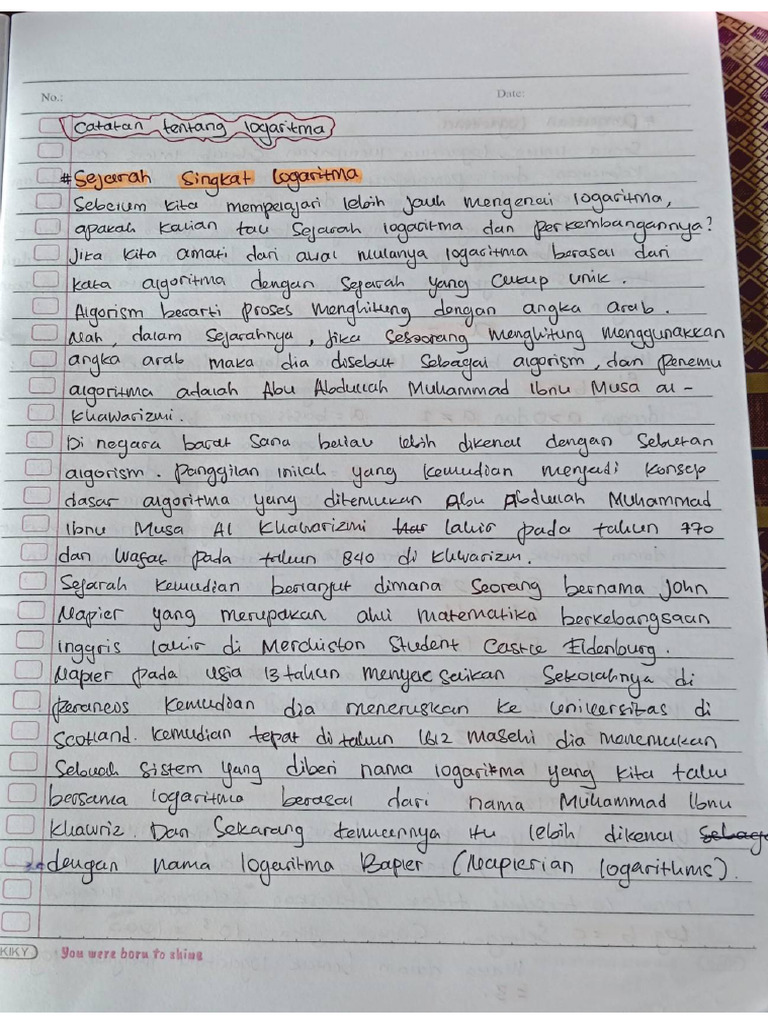 No.:
Date:
Catatan tentang logaritma
# Sejarah Singkat Logaritma
Sebelum kita mempelajari lebih jauh mengenai logaritma,
apakah kalian tau Sejarah logaritma dan perkembangannya?
Jika kita amati dari awal mulanya logaritma berasal dari
kata algoritma dengan Sejarah yang cukup unik.
Algorism berarti proses menghitung dengan angka arab.
Nah, dalam Sejarahnya, jika Seseorang menghitung menggunakkan
angka arab maka dia disebut Sebagai algorism, dan penemu
algoritma adalah Abu Abdullah Muhammad Ibnu Musa al-
Khawarizmi.
Di negara barat Sana beliau lebih dikenal dengan Sebutan
algorism. Panggilan inilah yang kemudian menjadi konsep
dasar algoritma yang ditemukan Abu Abdullah Muhammad
Ibnu Musa Al Khawarizmi lahir pada tahun 770
dan wafat pada tahun 840 di Khwarizm.
Sejarah kemudian berlanjut dimana Seorang bernama John
Napier yang merupakan ahli matematika berkebangsaan
inggris lahir di Merchiston Student Castle Eldenburg.
Napier pada usia 13 tahun menyelesaikan Sekolahnya di
perancis kemudian dia meneruskan ke Universitas di
Scotland. kemudian tepat di tahun 1612 masehi dia menemukan
Sebuah Sistem yang diberi nama logaritma yang kita tahu
bersama logaritma berasal dari nama Muhammad Ibnu
Khawriz. Dan Sekarang temuannya itu lebih dikenal
dengan nama logaritma Bapier (Neaplerian logarithms).
KIKY
You were born to shine